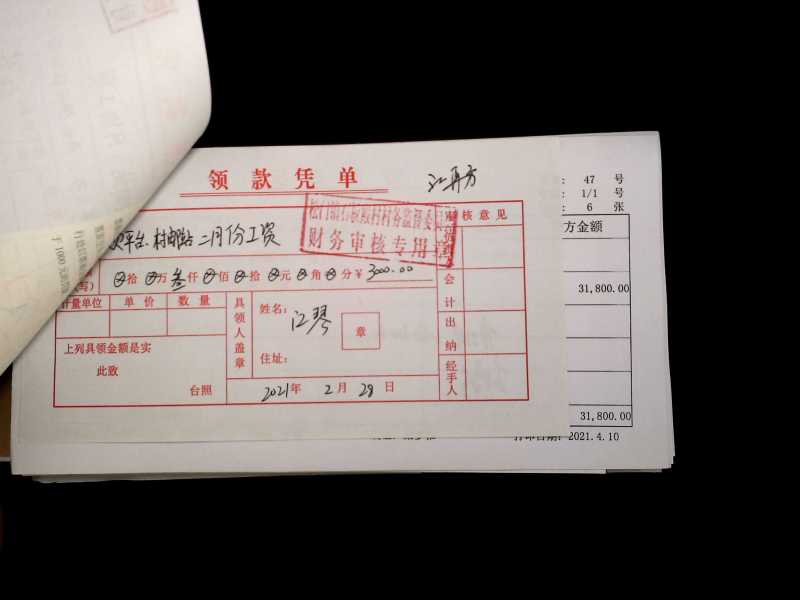 领款凭单
江再方
平台、村邮站二月份工资
财务审核专用章
核意见
拾 万叁仟 佰 拾 元 角 分¥3000.00
计量单位 单价 数量
具领人盖章
姓名：江琴
章
住址：
会计
出纳
经手人
上列具领金额是实
此致
台照
2021年 2月 28日
: 47 号
: 1/1 号
: 6 张
方金额
31,800.00
31,800.00
打印日期：2021.4.10
于1000元的罚